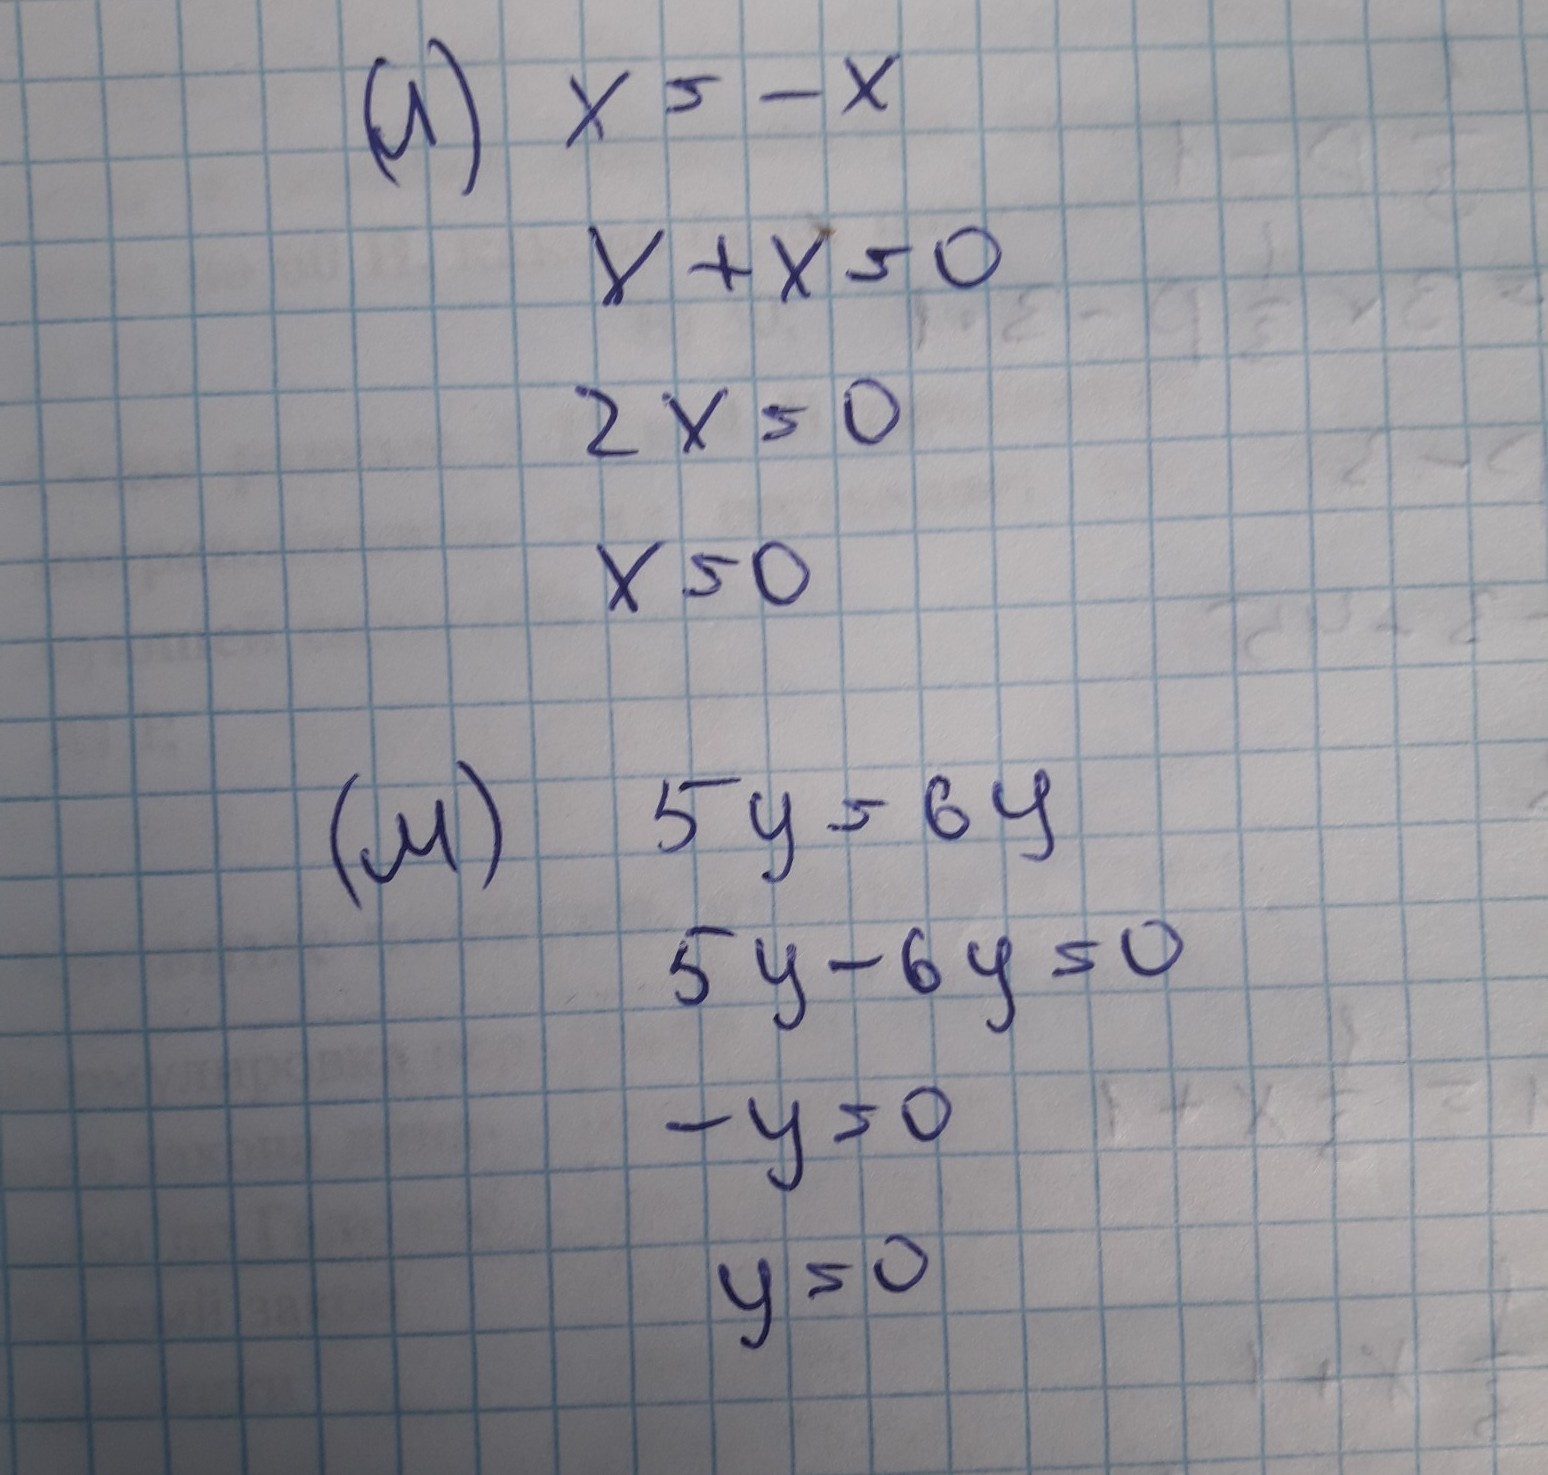 (л) x = -x
x + x = 0
2x = 0
x = 0
(м) 5y = 6y
5y - 6y = 0
-y = 0
y = 0